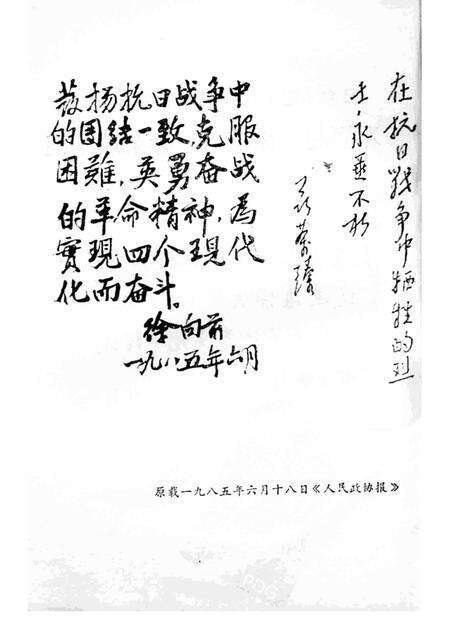 在抗日战争中牺牲的烈
士,永垂不朽
聂荣臻
发扬抗日战争中
的团结一致,克服
困難,英勇奋战
的革命精神,為
實現四个現代
化而奋斗。
徐向前
一九八五年六月
原载一九八五年六月十八日《人民政协报》